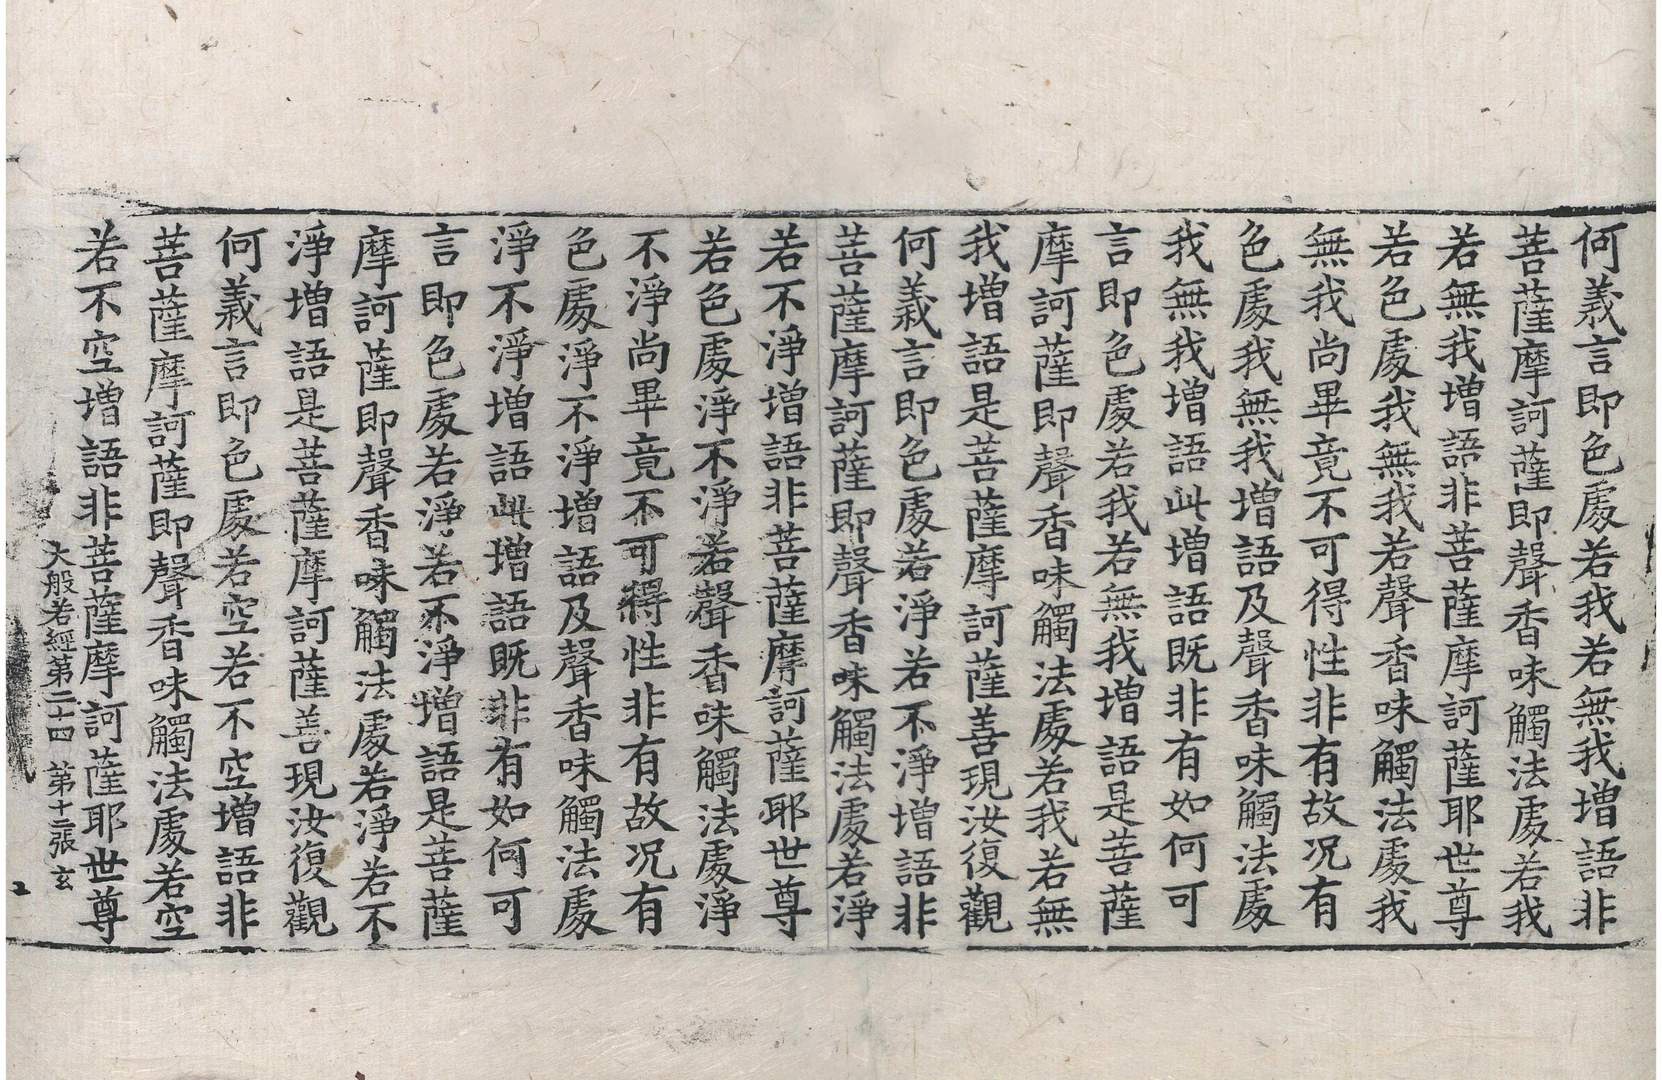 何義言即色處若我若無我增語非
菩薩摩訶薩即聲香味觸法處若我
若無我增語非菩薩摩訶薩耶世尊
若色處我無我若聲香味觸法處我
無我尚畢竟不可得性非有故况有
色處我無我增語及聲香味觸法處
我無我增語此增語既非有如何可
言即色處若我若無我增語是菩薩
摩訶薩即聲香味觸法處若我若無
我增語是菩薩摩訶薩善現汝復觀
何義言即色處若淨若不淨增語非
菩薩摩訶薩即聲香味觸法處若淨
若不淨增語非菩薩摩訶薩耶世尊
若色處淨不淨若聲香味觸法處淨
不淨尚畢竟不可得性非有故况有
色處淨不淨增語及聲香味觸法處
淨不淨增語此增語既非有如何可
言即色處若淨若不淨增語是菩薩
摩訶薩即聲香味觸法處若淨若不
淨增語是菩薩摩訶薩善現汝復觀
何義言即色處若空若不空增語非
菩薩摩訶薩即聲香味觸法處若空
若不空增語非菩薩摩訶薩耶世尊
大般若經第二十四 第十二張 玄